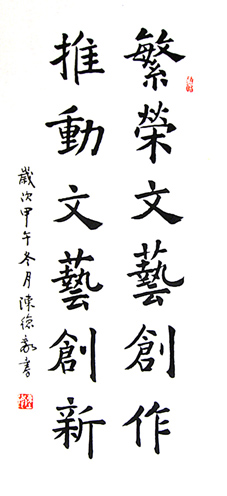 繁榮文藝創作
推動文藝創新
歲次甲午冬月陳德豪書